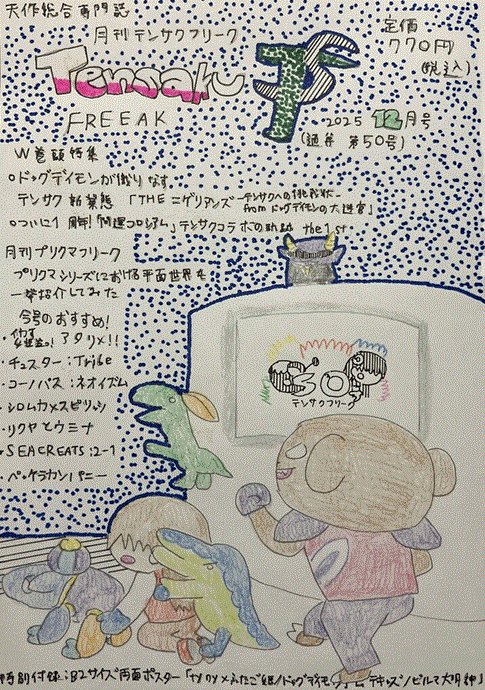 天作総合専門誌
月刊テンサクフリーク
定価
770円
(税込)
Tensaku
FREEAK
2025 12月号
(通巻 第50号)
W巻頭特集
○ドッグデイモンが織りなす
テンサク新業態「THE ニゲリアンズ -テンサクへの挑戦状-
from ドッグデイモンの大迷宮」
○ついに1周年!「開運コロシアム」テンサクコラボの軌跡 the 1st
月刊プリクマフリーク
プリクマシリーズにおける平面世界を
一挙紹介してみた
今号のおすすめ!
アタリメ!!
・チュスター:Tribe
・コーノバス:ネオイズム
・シロムカメスピリッツ
・リクヤとウミナ
・SEACREATS:2-1
・ペッケラカンパニー
テンサクフリーク
特別付録:B2サイズ両面ポスター「tyny×ふたご姫/ドッグデイモン